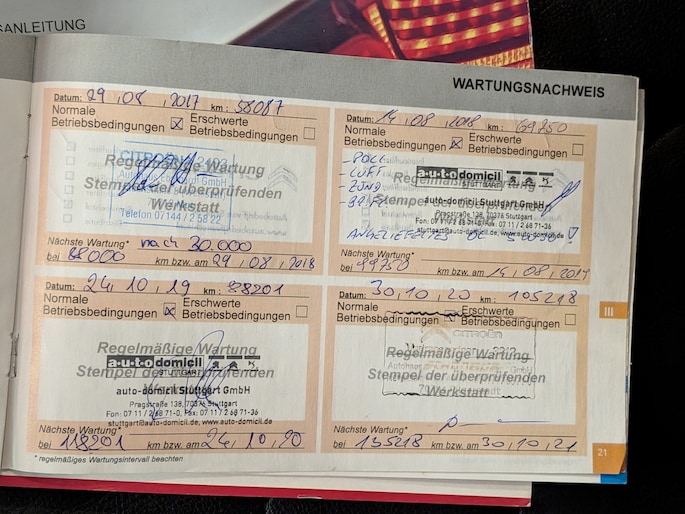 SANLEITUNG
WARTUNGSNACHWEIS
Datum: 29,08,2017 km: 58087
Normale Betriebsbedingungen ☒ Erschwerte Betriebsbedingungen ☐
CITROËN
Regelmäßige Wartung
Stempel der überprüfenden
Werkstatt
Telefon 07144 / 2 58 22
Nächste Wartung* nach 30.000
bei 88000 km bzw. am 29,08,2018
Datum: 14,08,2018 km: 69750
Normale Betriebsbedingungen ☒ Erschwerte Betriebsbedingungen ☐
- POLL
- LUFT
- ZÜND
- BR.FL
auto domicil
STUTTGART
Regelmäßige Wartung
auto-domicil Stuttgart GmbH
Stempel der überprüfenden
Pragstraße 138, 70376 Stuttgart
Werkstatt
stuttgart@auto-domicil.de, www.auto-domicil.de
ANGELIEFERTES ÖL
Nächste Wartung*
bei 99750 km bzw. am 14,08,2019
Datum: 24,10,19 km: 88201
Normale Betriebsbedingungen ☒ Erschwerte Betriebsbedingungen ☐
Regelmäßige Wartung
auto domicil
STUTTGART
Stempel der überprüfenden
Werkstatt
auto-domicil Stuttgart GmbH
Pragstraße 138, 70376 Stuttgart
Fon: 07 11 / 2 68 71-0, Fax: 07 11 / 2 68 71-36
stuttgart@auto-domicil.de, www.auto-domicil.de
Nächste Wartung*
bei 118201 km bzw. am 24,10,20
Datum: 30,10,20 km: 105218
Normale Betriebsbedingungen ☒ Erschwerte Betriebsbedingungen ☐
CITROËN
Regelmäßige Wartung
Stempel der überprüfenden
Werkstatt
Nächste Wartung*
bei 135218 km bzw. am 30,10,21
* regelmäßiges Wartungsintervall beachten
III
21